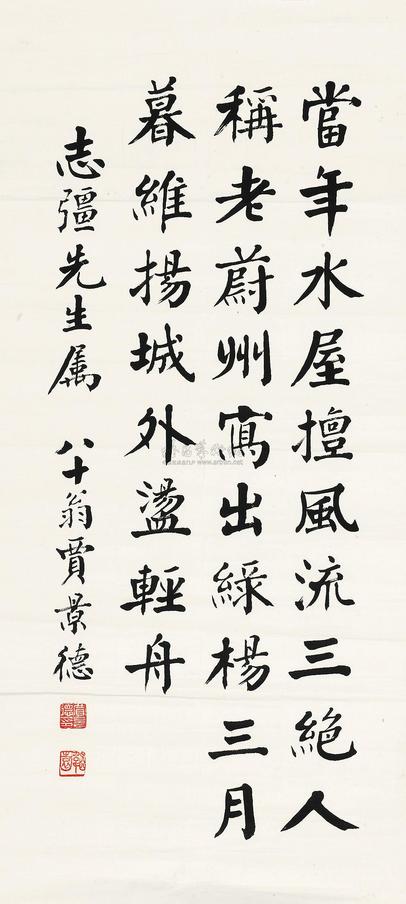 當年水屋擅風流三絕人
稱老蔚州寫出綠楊三月
暮維揚城外盪輕舟
志彊先生属 八十翁賈景德